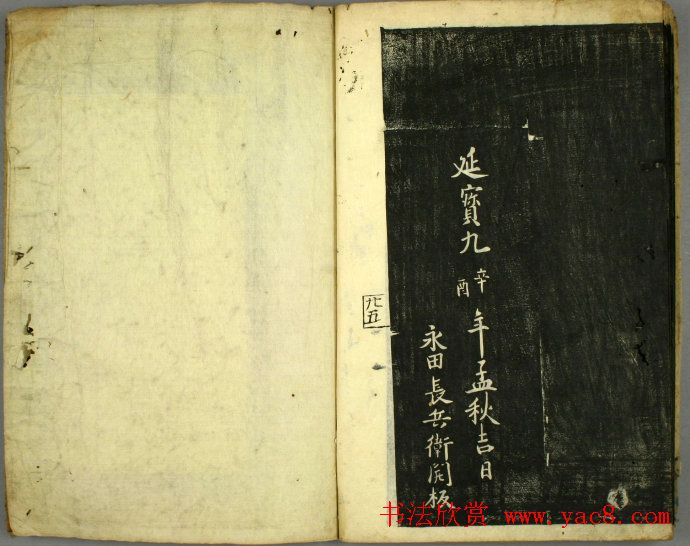 延寳九辛酉年孟秋吉日
永田長兵衛開板
廿五
书法欣赏 www.yac8.com